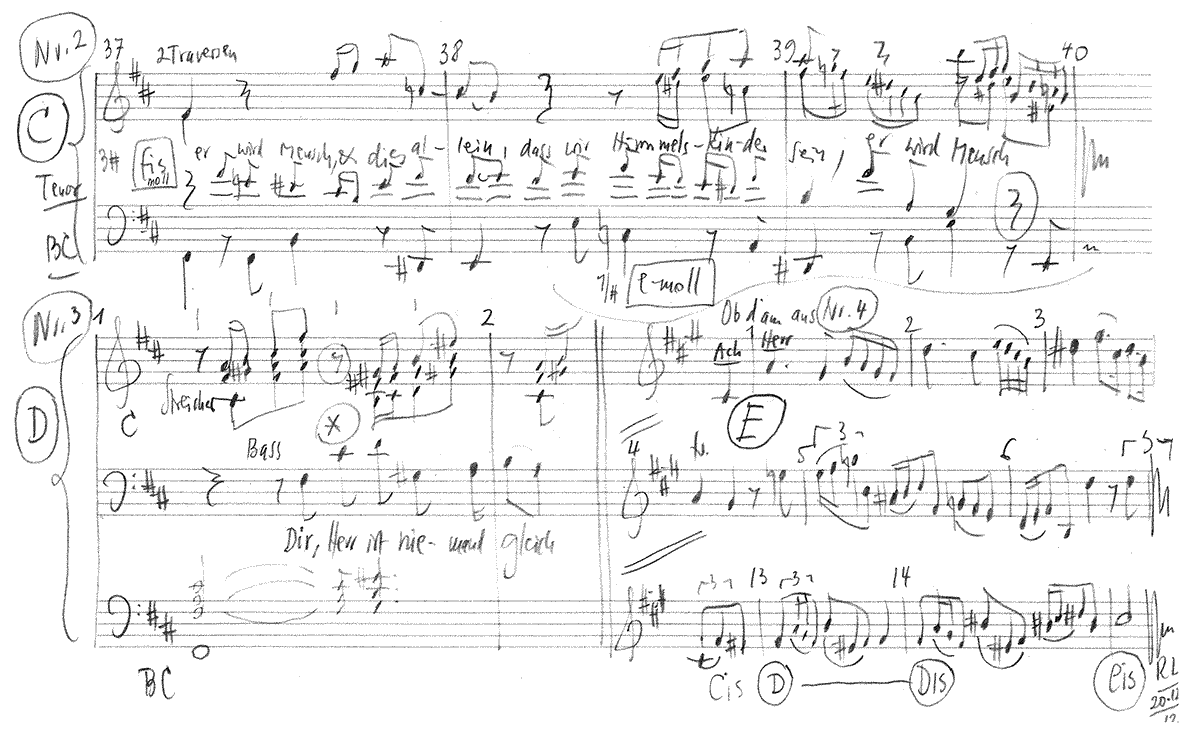 Nr. 2
37
2 Traversen
38
39
40
C
3#
Fis moll
er wird Mensch, & dies al- lein, dass wir Himmels- kin- der sein, er wird Mensch
Tenor
BC
1/#
e-moll
Nr. 3
1
2
Ob d'am aus Nr. 4
Ach Herr
2
3
D
C
Streicher
X
E
Bass
4
tr.
5
3
6
3
Dir, Herr ist nie- mand gleich
3
13
3
14
BC
Cis
D
Dis
eis
RL
20.12
12.